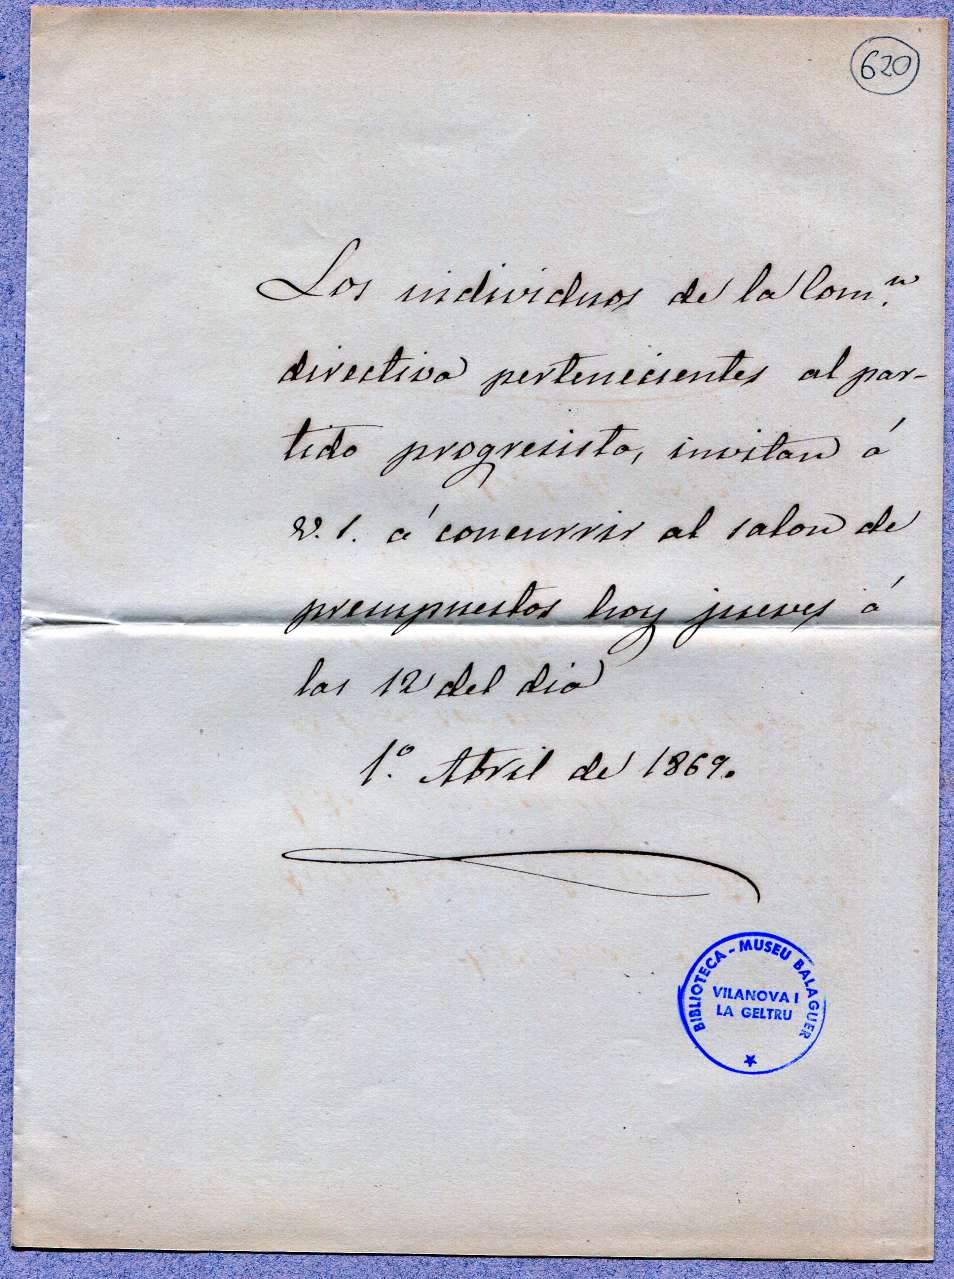 620
Los individuos de la Com.n
directiva pertenecientes al par-
tido progresista, invitan á
V. S. á concurrir al salon de
presupuestos hoy jueves á
las 12 del dia
1.º Abril de 1869.
BIBLIOTECA - MUSEU BALAGUER
VILANOVA I
LA GELTRU